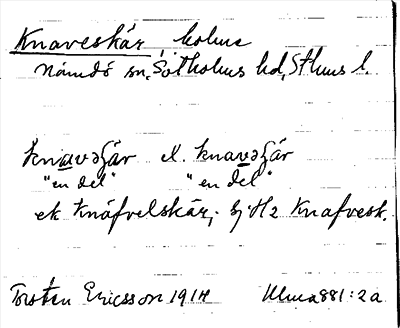 Knaveskär holme
Nämdö sn, Sotholms hd, Sthms l.
knavəʃär el. knavəʃär
"en del" "en del"
ek Knäfvelskär, sj. Hz Knafvesk.
Torsten Ericsson 1914 Ulma 881:2a